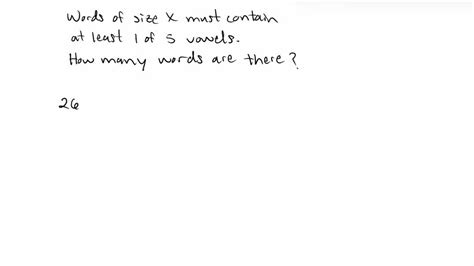 Words of size X must contain
at least 1 of 5 vowels.
How many words are there?
26